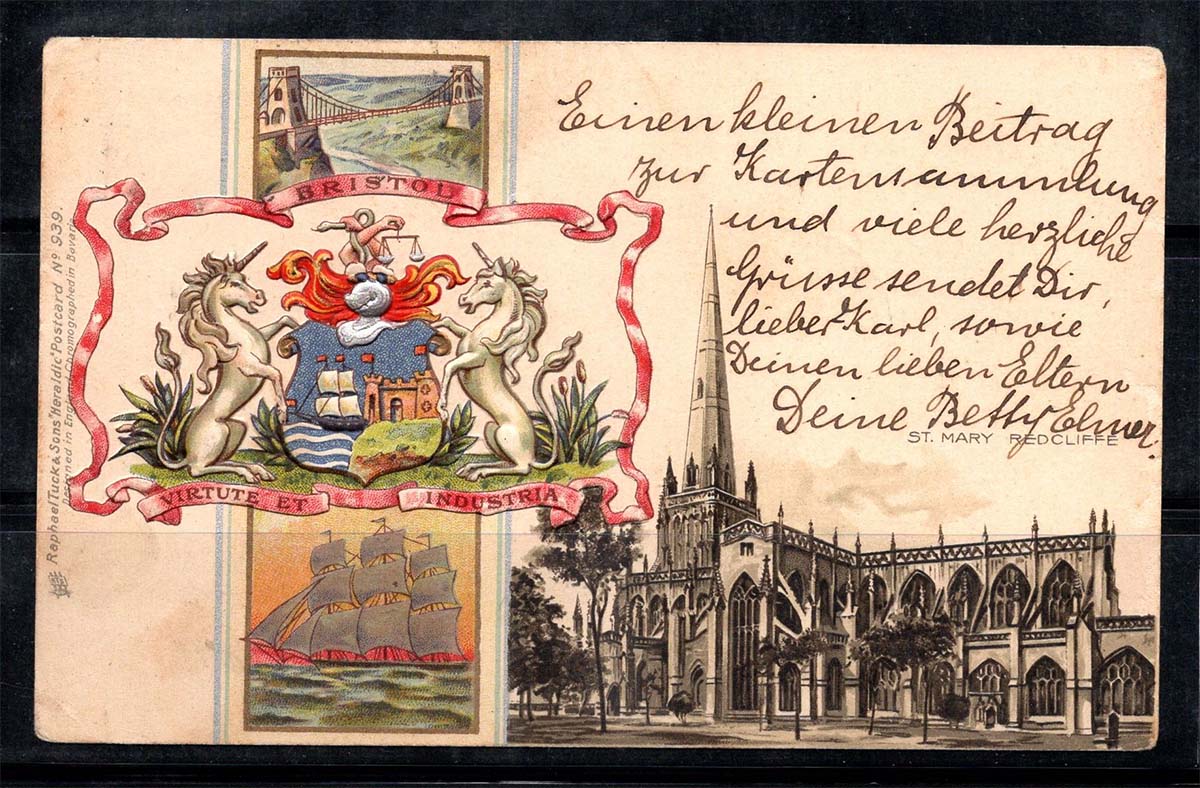 BRISTOL
VIRTUTE ET INDUSTRIA
Raphael Tuck & Sons "Heraldic" Postcard No 939.
Designed in England Chromographed in Bavaria
Einen kleinen Beitrag
zur Kartensammlung
und viele herzliche
Grüsse sendet Dir,
lieber Karl, sowie
Deinen lieben Eltern
Deine Betty Elmer.
ST. MARY REDCLIFFE